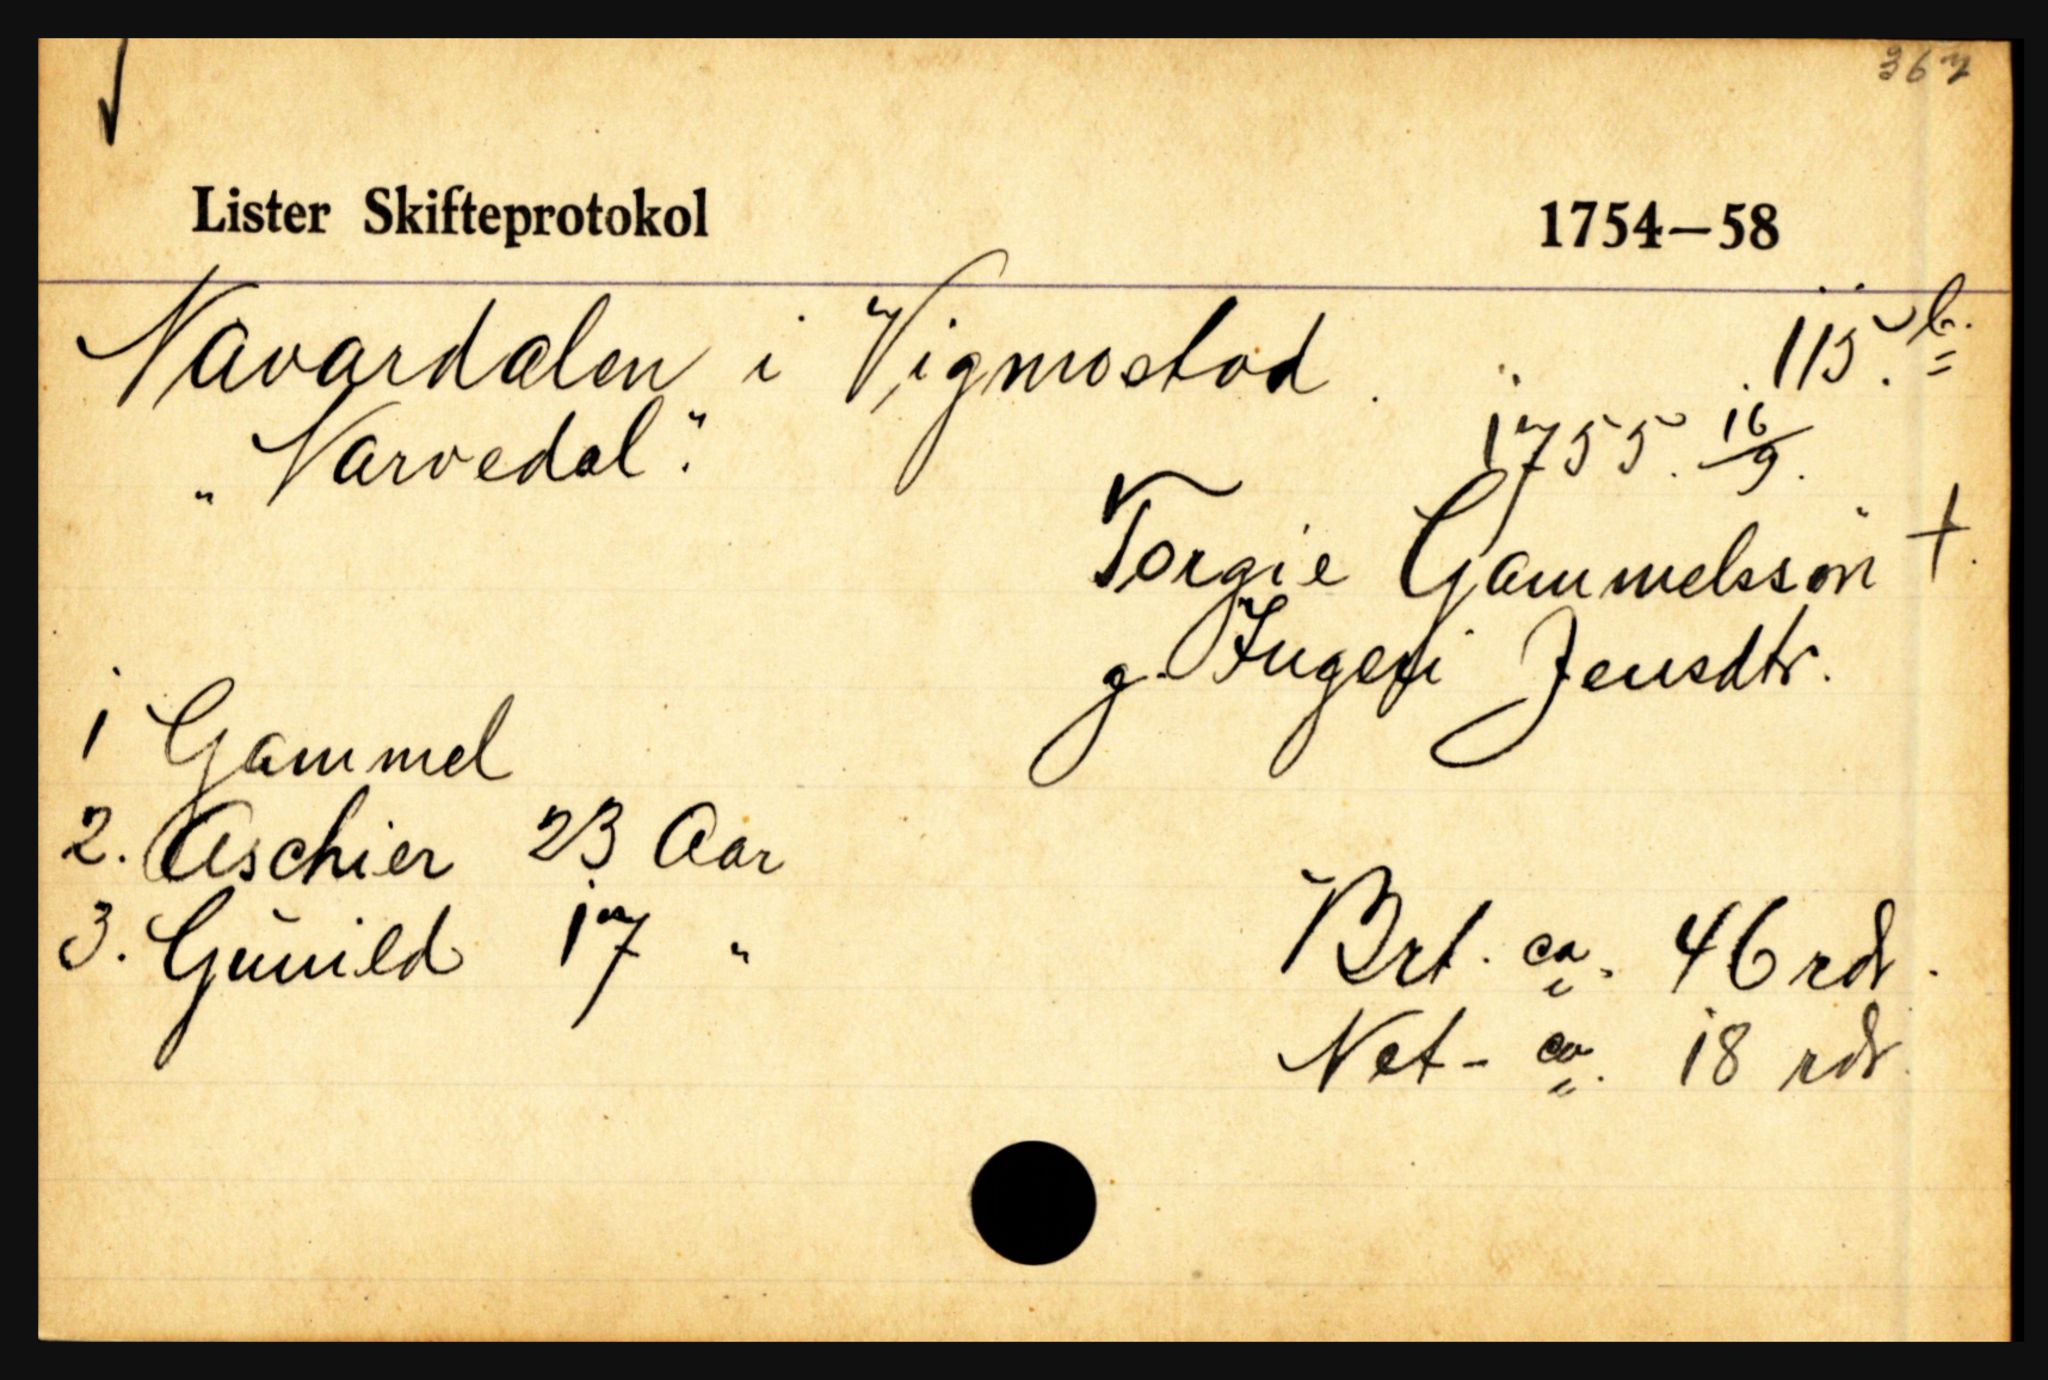 367
Lister Skifteprotokol 1754—58
Navardalen i Vigmostad. 115. b.
"Narvedal". 1755. 16/9.
Torgie Gammelssön †.
g. Ingeri Jensdtr.
1 Gammel
2. Aschier 23 Aar
3. Gunild 17 "
Brt. ca. 46 rdr.
Net- ca. 18 rdr.